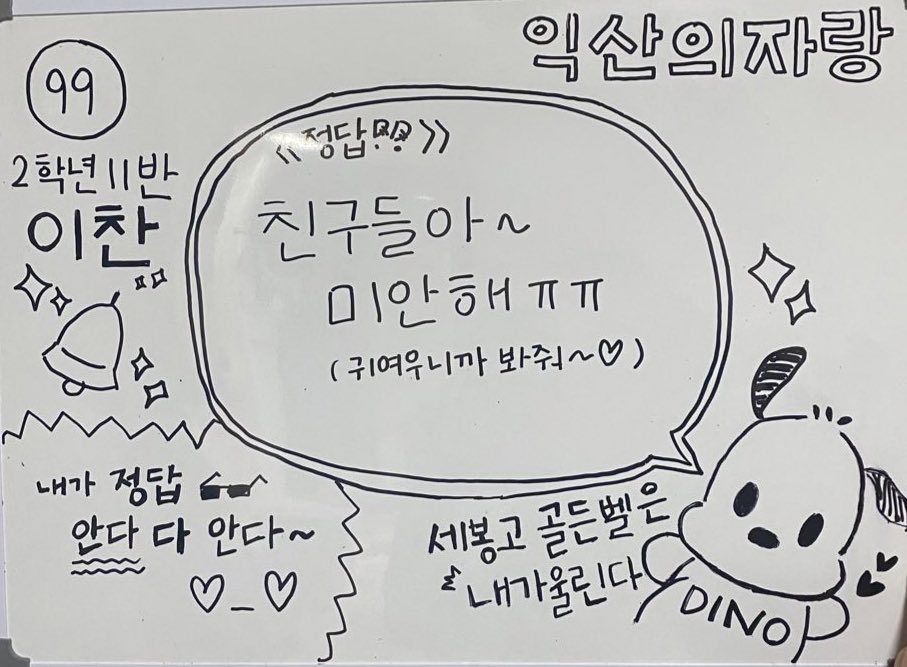 익산의자랑
99
2학년 11반
이찬
<<정답!?>>
친구들아~
미안해 ㅠㅠ
(귀여우니까 봐줘~♡)
내가 정답
안다 다 안다~
♡_♡
세봉고 골든벨은
내가울린다
DINO